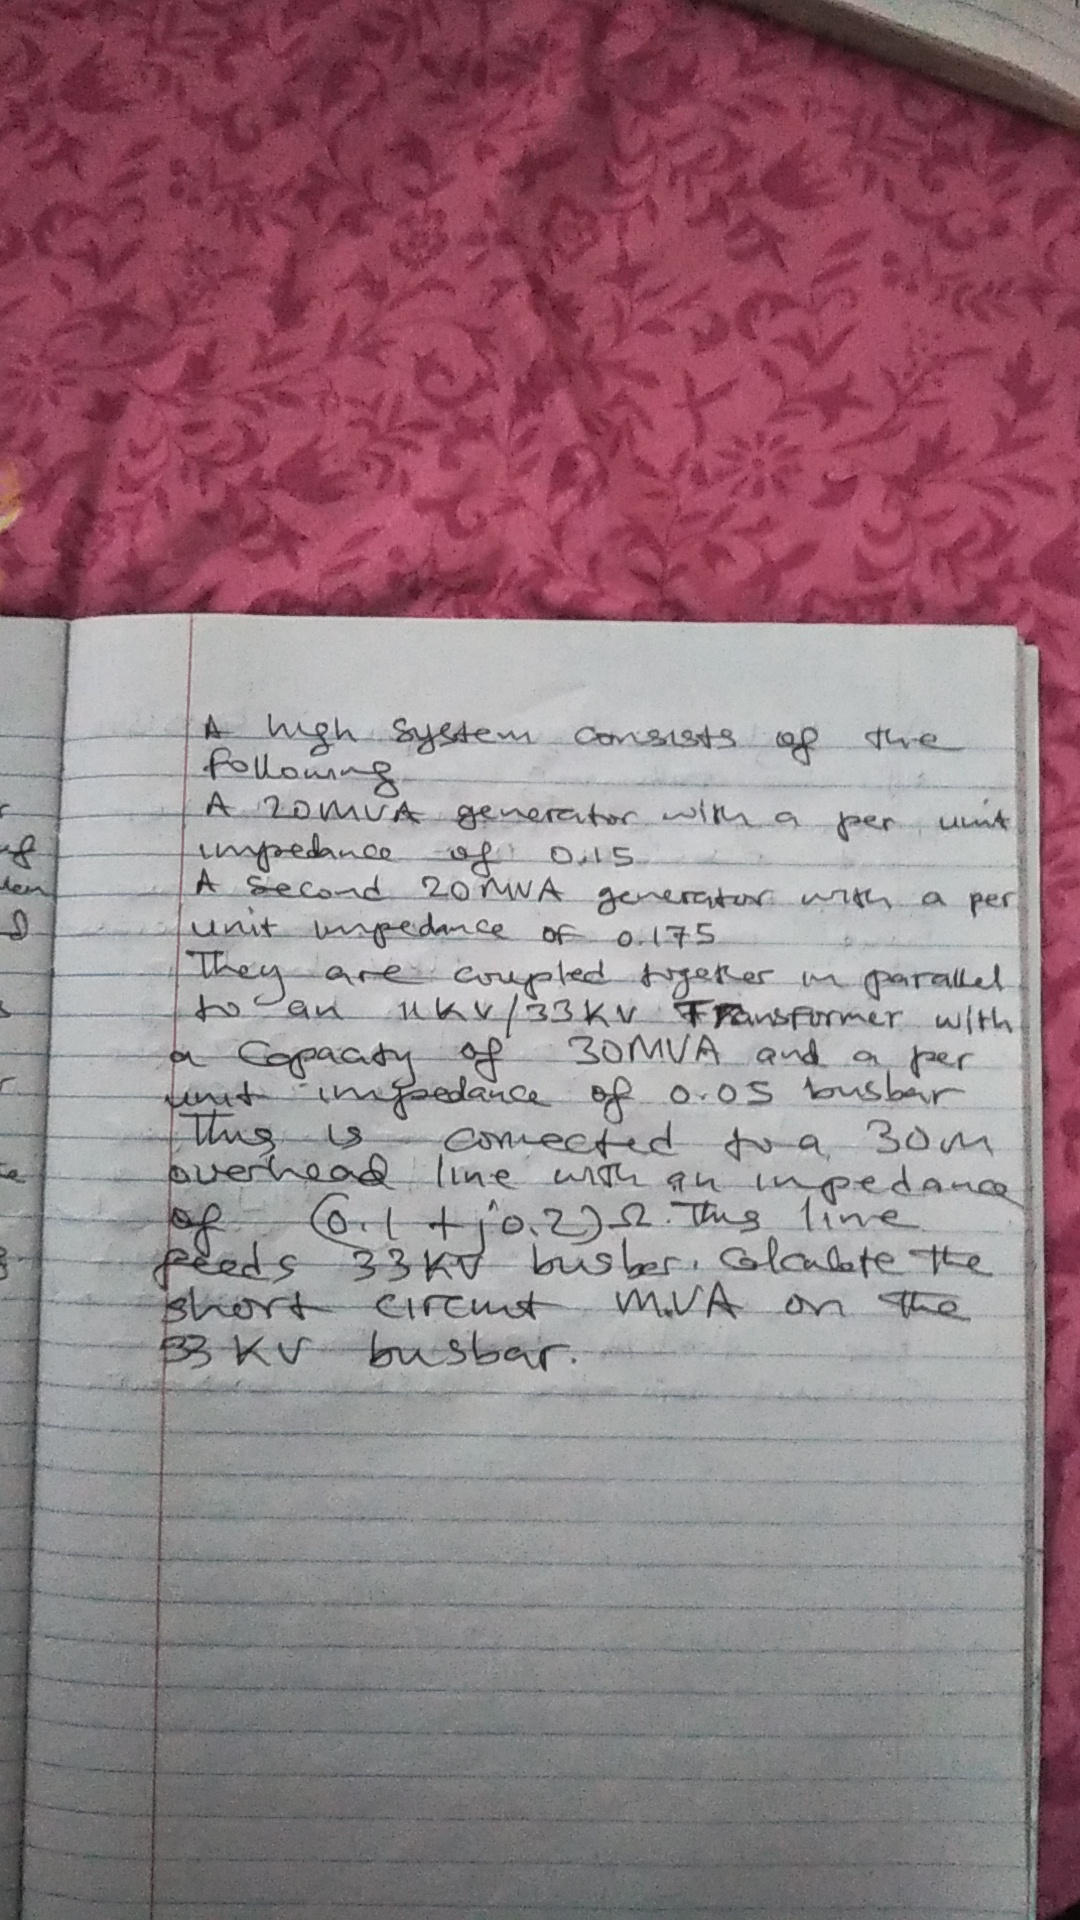 A high system consists of the
following
A 20MVA generator with a per unit
impedance of 0.15
A second 20MVA generator with a per
unit impedance of 0.175
They are coupled together in parallel
to an 11KV/33KV Transformer with
a Capacity of 30MVA and a per
unit impedance of 0.05 busbar
This is connected to a 30m
overhead line with an impedance
of (0.1 + j0.2)Ω. This line
feeds 33KV busbar. Calculate the
short circuit M.VA on the
33KV busbar.